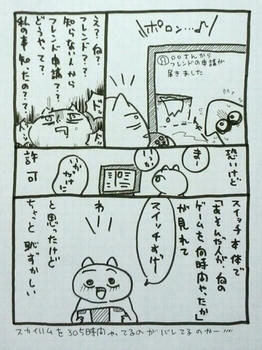 ポロン…♪
○○さんから
フレンドの申請が
届きました
え?ね?
フレンド??
知らない人から
フレンド申請??
どうやって??
私の事知ったの??
恐いけど
ま
いっか
許可
スイッチ本体で
ゲームを何時間やったか」
が見れて
スイッチすげー
わ
と思ったけど
ちょっと恥ずかしい
スカイリムを305時間やってるのがバレてるのかー…